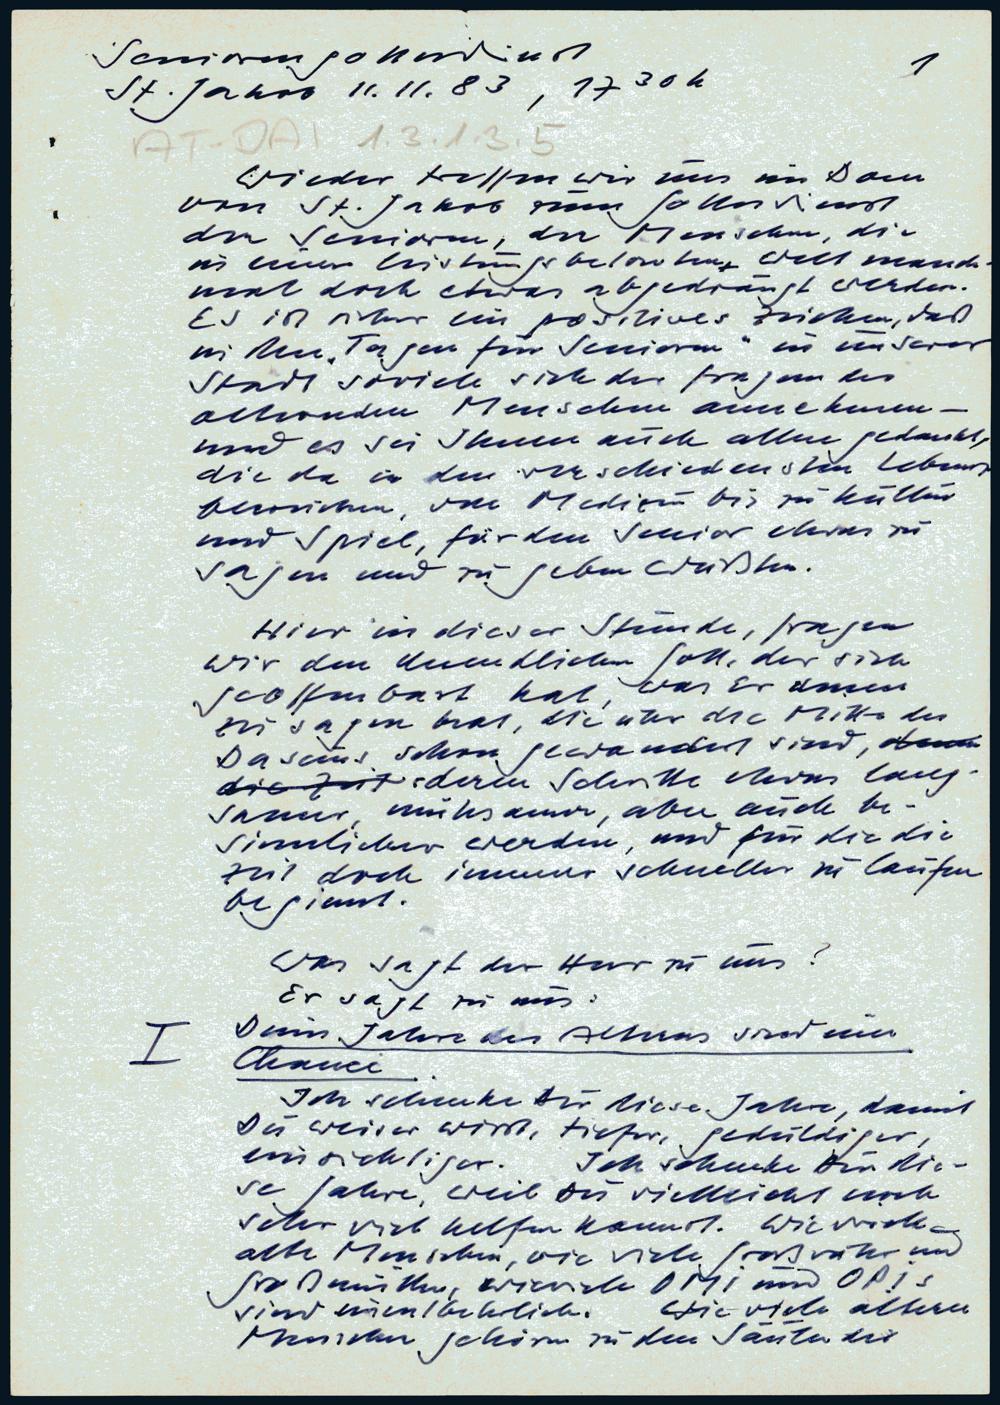 Seniorengottesdienst
1
St. Jakob 11.11.83, 17 30 h
AT-DAI 1.3.1.3.5
Wieder treffen wir uns im Dom
von St. Jakob zum Gottesdienst
der Senioren, der Menschen, die
in einer leistungsbetonten Welt manch-
mal doch etwas abgedrängt werden.
Es ist sicher ein positives Zeichen, daß
in den "Tagen für Senioren" in unserer
Stadt soviele sich der Fragen des
alternden Menschen annehmen –
und es sei Ihnen auch allen gedankt,
die da in den verschiedensten Lebens-
bereichen, von Medizin bis zu Kultur
und Spiel, für den Senior etwas zu
sagen und zu geben wußten.
Hier in dieser Stunde, fragen
wir den unendlichen Gott, der sich
geoffenbart hat, was Er denen
zu sagen hat, die über die Mitte des
Daseins schon gewandert sind, denen
die Zeit deren Schritte etwas lang-
samer, mühsamer, aber auch be-
sinnlicher werden, und für die die
Zeit doch immer schneller zu laufen
beginnt.
Was sagt der Herr zu uns?
Er sagt zu uns:
I Deine Jahre des Alterns sind eine
Chance.
Ich schenke Dir diese Jahre, damit
Du weiser wirst, tiefer, geduldiger,
einsichtiger. Ich schenke Dir die-
se Jahre, weil Du vielleicht noch
sehr viel helfen kannst. Wie viele
alte Menschen, wie viele Großväter und
Großmütter, wieviele OMIs und OPIs
sind unentbehrlich. Wie viele ältere
Menschen gehören zu den Säulen der